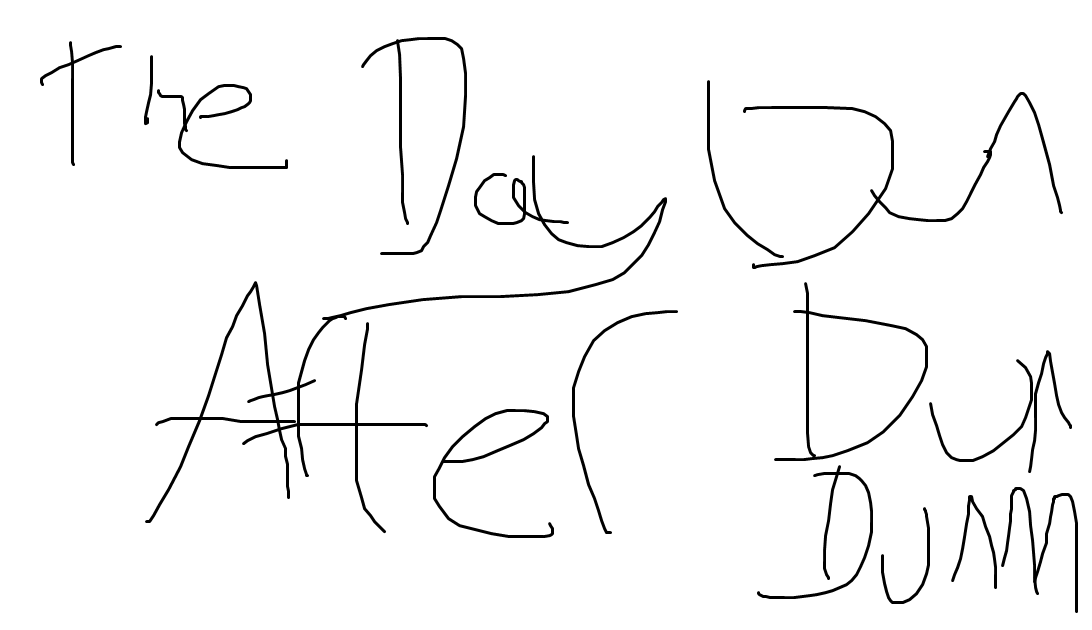 The Day Dun
After Dun
DUNNN